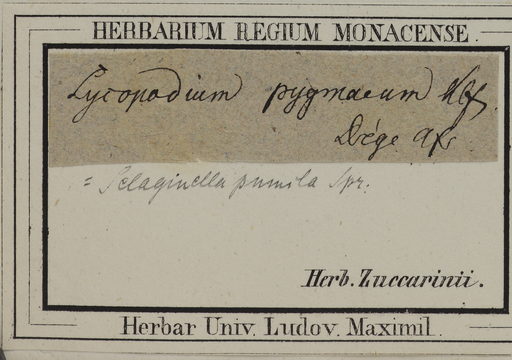 HERBARIUM REGIUM MONACENSE.
Lycopodium pygmaeum Klf
Drége afr
= Selaginella pumila Spr.
Herb. Zuccarinii.
Herbar Univ. Ludov. Maximil.